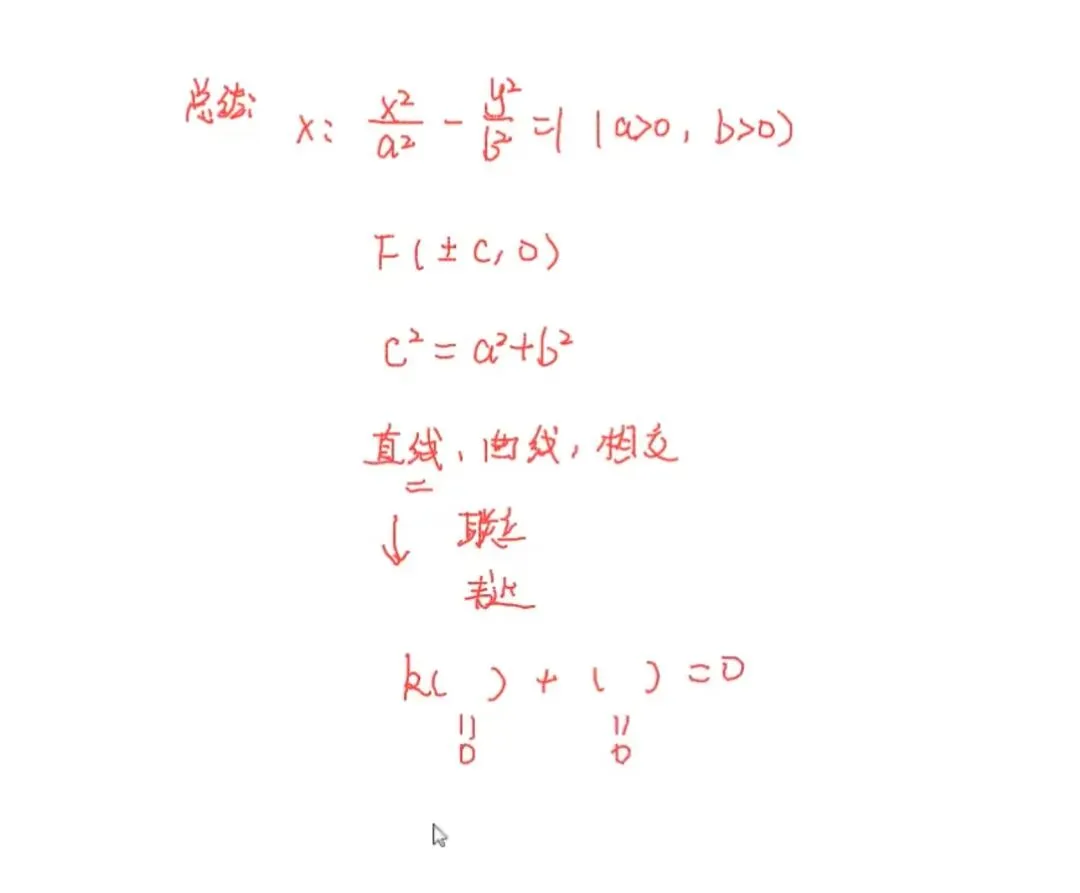 总结: x: x²/a² - y²/b² = 1 (a>0, b>0)
F(±c, 0)
c² = a²+b²
直线, 曲线, 相交
= 
↓ 联立
韦达
k( ) + ( ) = 0
|| ||
0 0